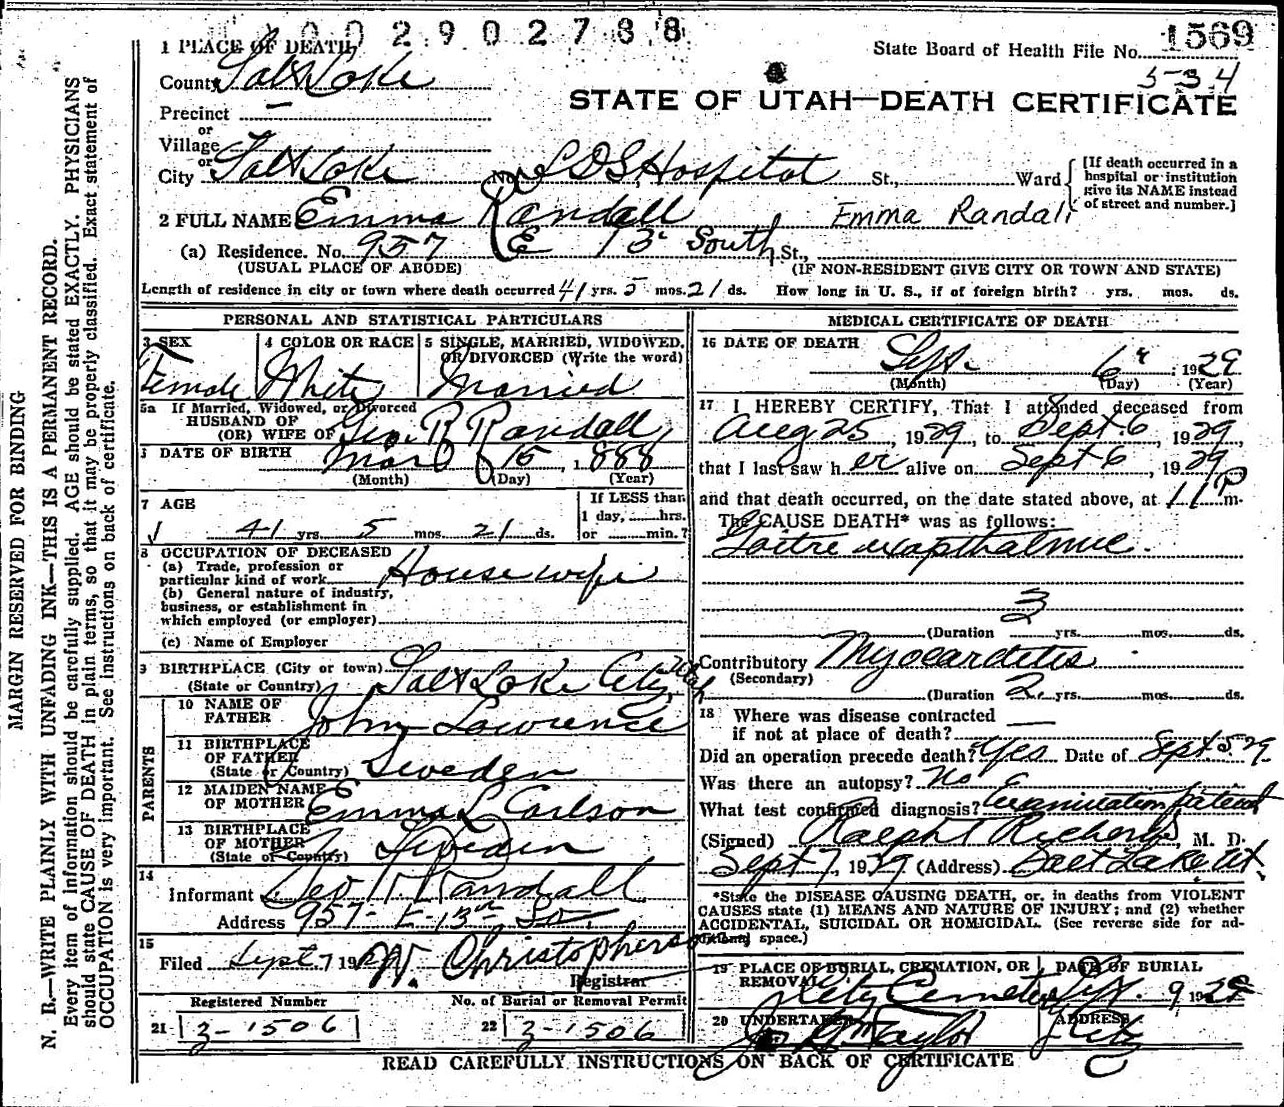 0 0 2 9 0 2 7 8 8
State Board of Health File No. 1569
5-3-4
1 PLACE OF DEATH
County Salt Lake
STATE OF UTAH—DEATH CERTIFICATE
Precinct —
or
Village
or
City Salt Lake No. L D S Hospital St., Ward
[If death occurred in a hospital or institution give its NAME instead of street and number.]
2 FULL NAME Emma Randall Emma Randall
(a) Residence. No. 957 E 13 South St.,
(USUAL PLACE OF ABODE) (IF NON-RESIDENT GIVE CITY OR TOWN AND STATE)
Length of residence in city or town where death occurred 41 yrs. 5 mos. 21 ds. How long in U. S., if of foreign birth? yrs. mos. ds.
PERSONAL AND STATISTICAL PARTICULARS
3 SEX 4 COLOR OR RACE 5 SINGLE, MARRIED, WIDOWED, OR DIVORCED (Write the word)
Female White Married
5a If Married, Widowed, or Divorced
HUSBAND OF
(OR) WIFE OF Geo. R Randall
DATE OF BIRTH Mar 15, 1888
(Month) (Day) (Year)
7 AGE
If LESS than
1 day, hrs.
41 yrs. 5 mos. 21 ds. or min.?
8 OCCUPATION OF DECEASED
(a) Trade, profession or
particular kind of work Housewife
(b) General nature of industry,
business, or establishment in
which employed (or employer)
(c) Name of Employer
9 BIRTHPLACE (City or town) Salt Lake City Utah
(State or Country)
PARENTS
10 NAME OF
FATHER John Lawrence
11 BIRTHPLACE
OF FATHER
(State or Country) Sweden
12 MAIDEN NAME
OF MOTHER Emma L Carlson
13 BIRTHPLACE
OF MOTHER
(State or Country) Sweden
14
Informant Geo R Randall
Address 957-E-13th So
15
Filed Sept 7 192 W. Christopherson
Registrar
Registered Number No. of Burial or Removal Permit
21 3-1506 22 3-1506
MEDICAL CERTIFICATE OF DEATH
16 DATE OF DEATH
Sept. 6, 1929
(Month) (Day) (Year)
17 I HEREBY CERTIFY, That I attended deceased from
Aug 25, 1929, to Sept 6, 1929,
that I last saw her alive on Sept 6, 1929
and that death occurred, on the date stated above, at 11 P m.
The CAUSE DEATH* was as follows:
Goitre exapthalmic.
(Duration 3 yrs. mos. ds.
Contributory Myocarditis
(Secondary)
(Duration 2 yrs. mos. ds.
18 Where was disease contracted
if not at place of death?
Did an operation precede death? Yes Date of Sept 5 29
Was there an autopsy? No
What test confirmed diagnosis?
(Signed) Ralph T Richards, M. D.
Sept 7, 1929 (Address) Salt Lake Ut.
*State the DISEASE CAUSING DEATH, or, in deaths from VIOLENT
CAUSES state (1) MEANS AND NATURE OF INJURY; and (2) whether
ACCIDENTAL, SUICIDAL OR HOMICIDAL. (See reverse side for ad-
ditional space.)
19 PLACE OF BURIAL, CREMATION, OR DATE OF BURIAL
REMOVAL
City Cemetery Sept. 9 1929
20 UNDERTAKER ADDRESS
Taylor City
READ CAREFULLY INSTRUCTIONS ON BACK OF CERTIFICATE
MARGIN RESERVED FOR BINDING
N. B.—WRITE PLAINLY WITH UNFADING INK—THIS IS A PERMANENT RECORD.
Every item of information should be carefully supplied. AGE should be stated EXACTLY. PHYSICIANS
should state CAUSE OF DEATH in plain terms, so that it may be properly classified. Exact statement of
OCCUPATION is very important. See instructions on back of certificate.